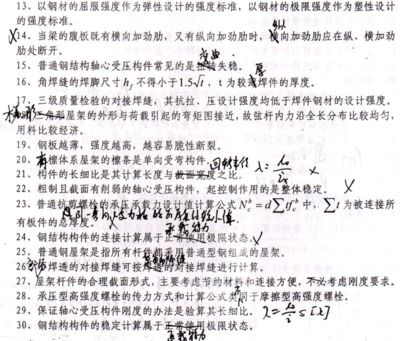 13、以钢材的屈服强度作为弹性设计的强度标准，以钢材的极限强度作为塑性设计
的强度标准。
14、当梁的腹板既有横向加劲肋，又有纵向加劲肋时，横向加劲肋应在纵、横加劲
肋处断开。
15、普通钢结构轴心受压构件常见的是扭转失稳。
16、角焊缝的焊脚尺寸hf不得小于1.5√t，t为较薄焊件的厚度。
17、三级质量检验的对接焊缝，其抗拉、压设计强度均低于焊件钢材的设计强度。
三角形屋架的外形与荷载引起的弯矩图接近，故弦杆内力沿全长分布比较均匀，
用料比较经济。
19、钢板越薄，强度越高，越容易脆性断裂。
20、有檩体系屋架的檩条是单向受弯构件。
21、构件的长细比是其计算长度与截面宽度之比。 回转半径
22、粗制且截面有削弱的轴心受压构件，起控制作用的是整体稳定。 ×
23、普通抗剪螺栓的承压承载力设计值计算公式 中，∑t为被连接所
有板件的总厚度。
承载能力
24、钢结构构件的连接计算属于正常使用极限状态。
25、普通钢屋架是指所有杆件都采用普通型钢组成的屋架。
的对接焊缝可按 的对接焊缝进行计算。
27、屋架杆件的合理截面形式，主要考虑节约材料和连接方便，不必考虑刚度要求。
28、承压型高强度螺栓的传力方式和计算公式 同于摩擦型高强度螺栓。
29、保证轴心受压构件刚度的办法是验算其长细比。
30、钢结构构件的稳定计算属于正常使用极限状态。
承载能力